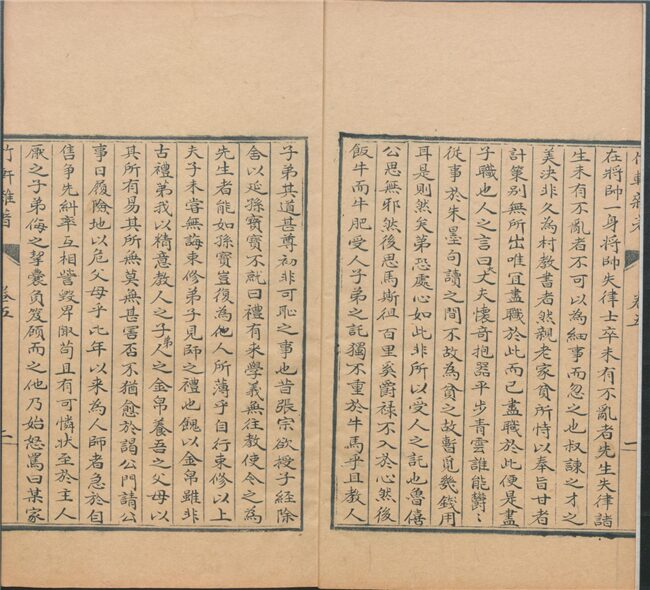 竹軒雜著 卷五 一
在將帥一身將帥失律士卒未有不亂者先生失律諸
生未有不亂者不可以為細事而忽之也叔諫之才之
美決非久為村教書者然親老家貧所恃以奉旨甘者
計策別無所出唯宜盡職於此而已盡職於此便是盡
子職也人之言曰丈夫懷奇抱器平步青雲誰能欝〻
從事於朱墨句讀之間不故為貧之故暫覓幾錢用
耳是則然矣第恐處心如此非所以受人之託也魯僖
公思無邪然後思馬斯徂百里奚爵祿不入於心然後
飯牛而牛肥受人子弟之託獨不重於牛馬乎且教人
子弟其道甚尊初非可恥之事也昔張宗欲授子經除
舍以延孫寶寶不就曰禮有來學義無往教使令之為
先生者能如孫寶豈復為他人所薄乎自行束修以上
夫子未嘗無誨束修弟子見師之禮也餽以金帛雖非
古禮弟我以精意教人之子弟人之金帛養吾之父母以
其所有易其所無莫無甚害否不猶愈於謁公門請公
事日履險地以危父母乎比年以來為人師者急於自
售爭先糾率互相營毀卑陬苟且有可憐狀至於主人
厭之子弟侮之挈囊負笈顧而之他乃始怒罵曰某家
竹軒雜著 卷五 二